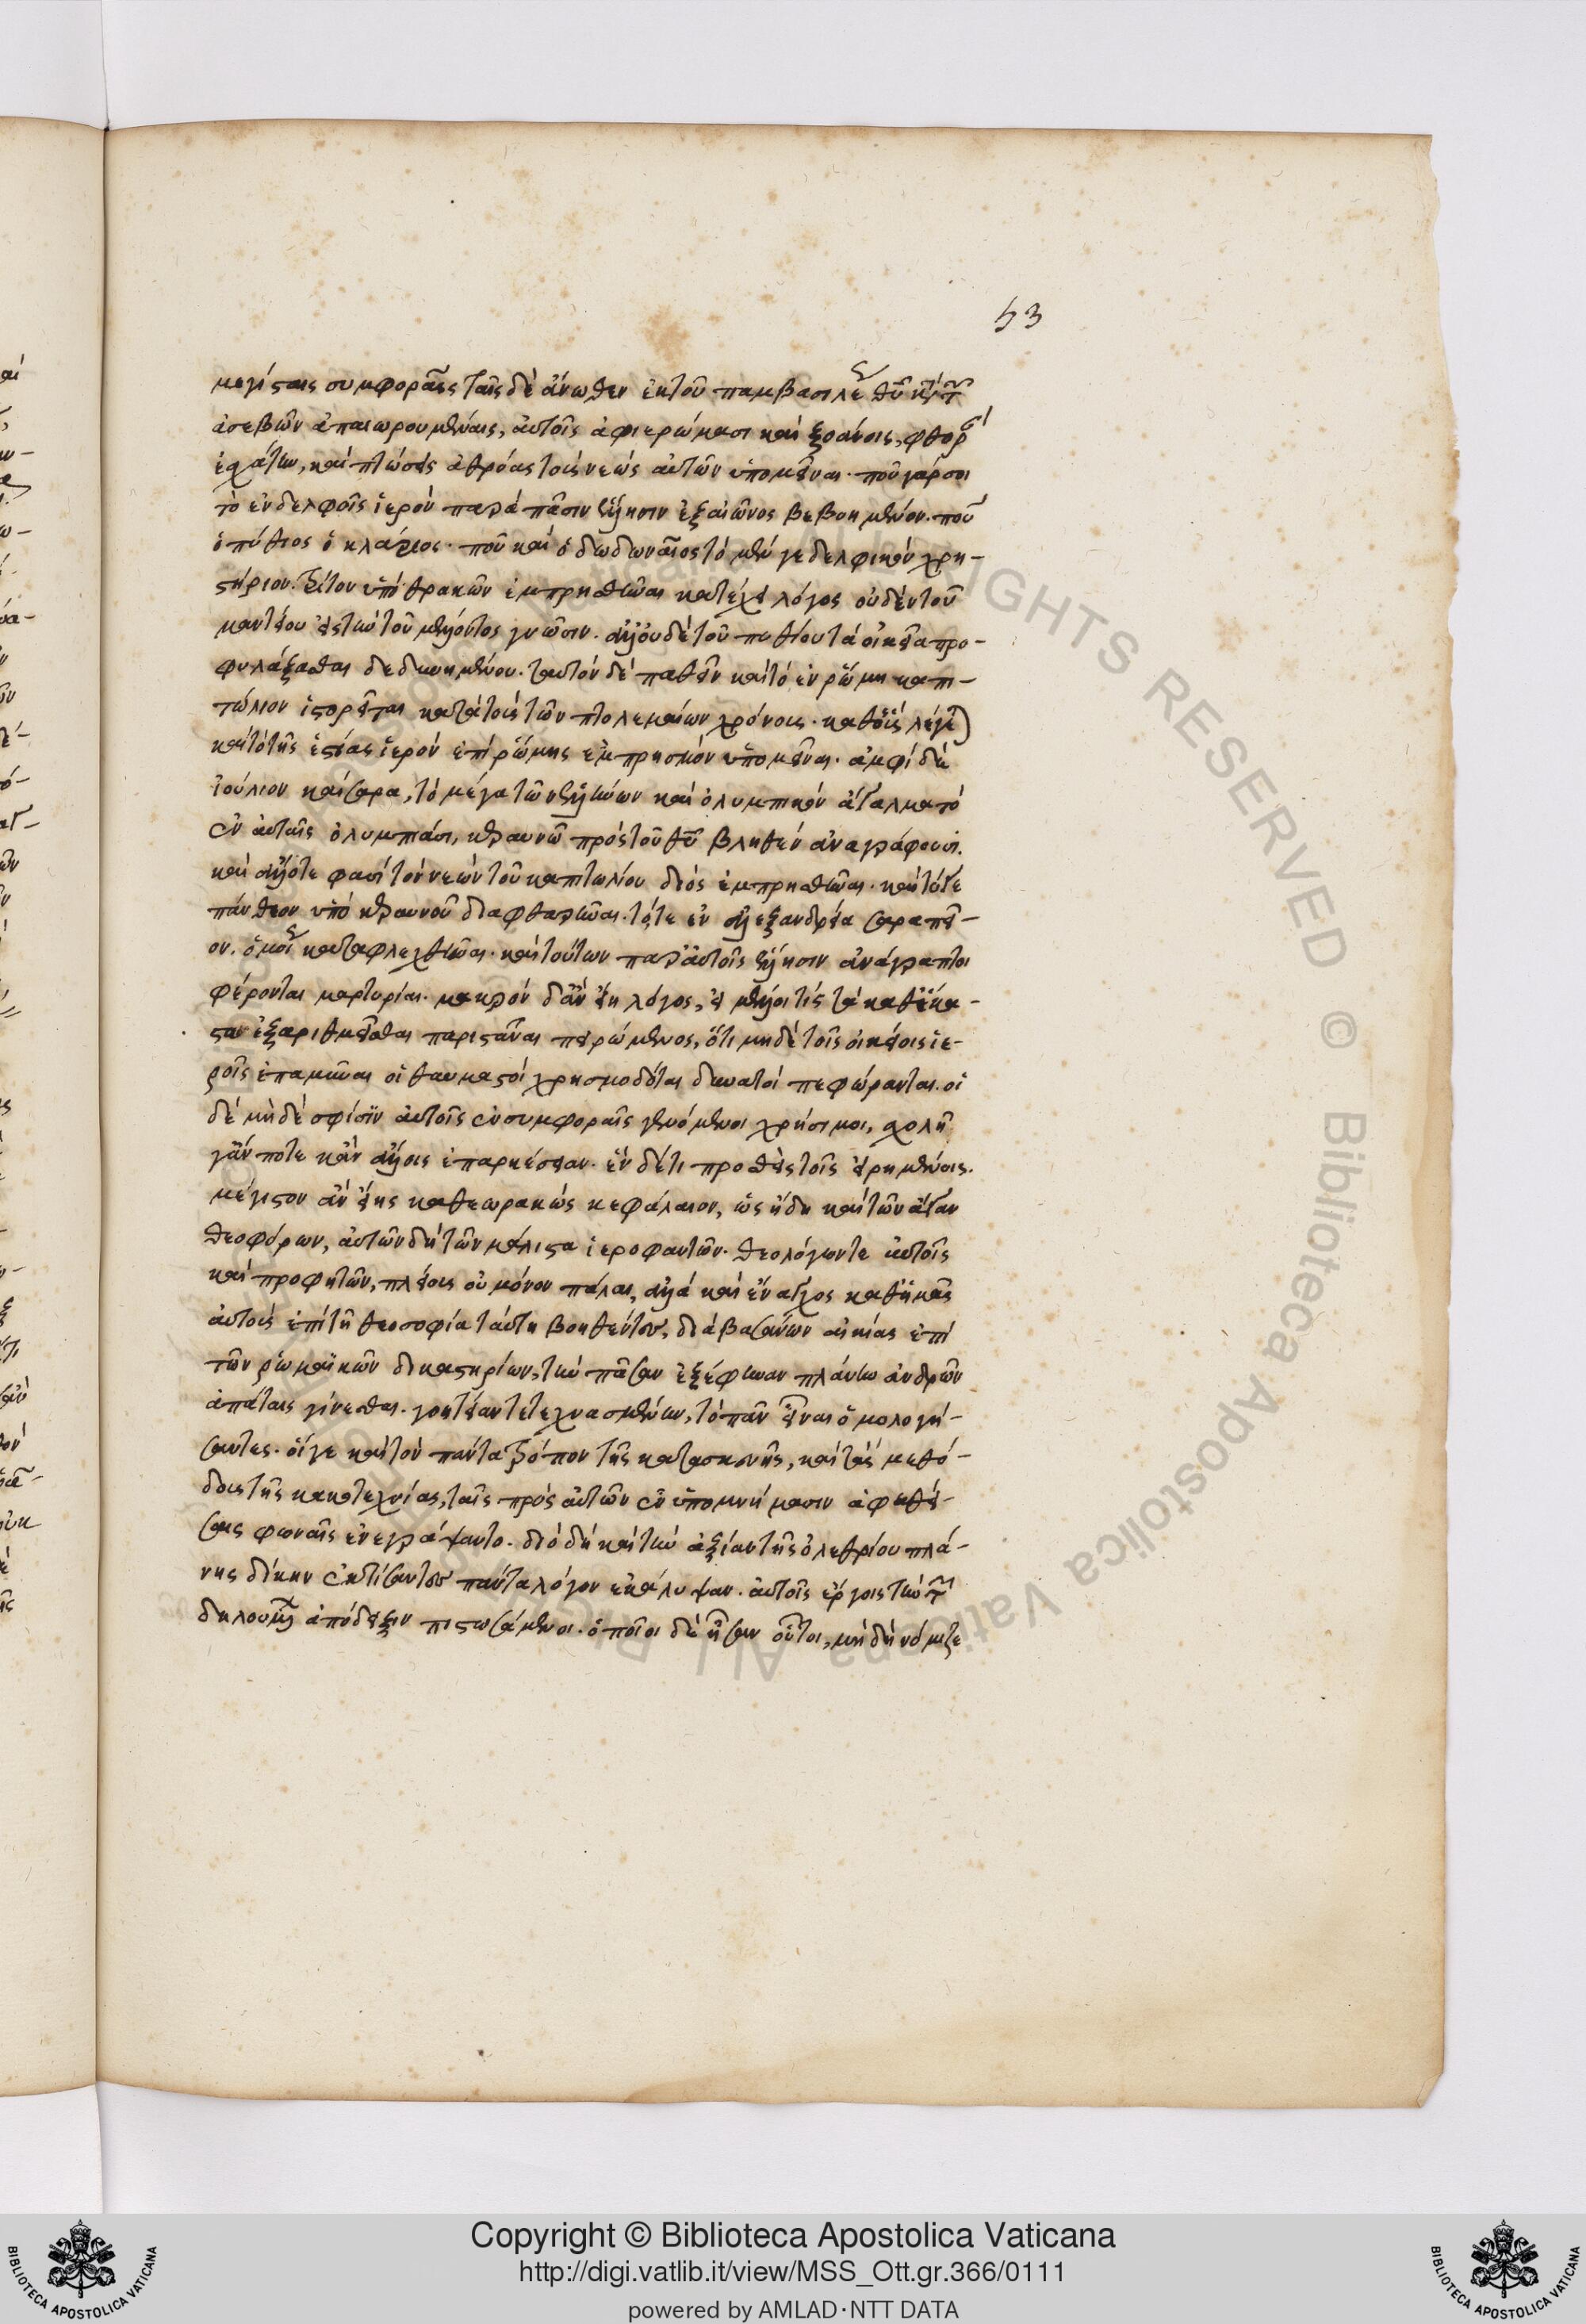 53
μεγίσταις συμφοραῖς ταῖς δὲ ἄνωθεν ἐκ τοῦ παμβασιλέως θῦ κατὰ τῶν
ἀσεβῶν ἐπαιωρουμέναις, αὐτοῖς ἀφιερώμασι καὶ ξοάνοις, φθορὰν
ἐσχάτην, καὶ πτώσεις ἀθρόας τοὺς νεὼς αὐτῶν ὑπομεῖναι. ποῦ γάρ σοι
τὸ ἐν δελφοῖς ἱερὸν παρὰ πᾶσιν ἕλλησιν ἐξ αἰῶνος βεβοημένον. ποῦ
ὁ πύθιος ὁ κλάριος. ποῦ καὶ ὁ δωδωναῖος τὸ μέν γε δελφικὸν χρη-
στήριον. τρίτον ὑπὸ θρακῶν ἐμπρησθῆναι κατέχει λόγος οὐδὲν τοῦ
μαντείου εἰς τὴν τοῦ μέλλοντος γνῶσιν. ἀλλ' οὐδὲ τοῦ πυθίου τὰ οἰκεῖα προ-
φυλάξασθαι δεδυνημένου. ταυτὸν δὲ παθεῖν καὶ τὸ ἐν ῥώμη καπι-
τώλιον ἱστορεῖται κατὰ τοὺς τῶν πτολεμαίων χρόνους. καθ' οὓς λέγεται
καὶ τὸ τῆς ἑστίας ἱερὸν ἐπὶ ῥώμης ἐμπρησμὸν ὑπομεῖναι. ἀμφὶ δὲ
ἰούλιον καίσαρα, τὸ μέγα τῶν ἑλλήνων καὶ ὀλυμπικὸν ἄγαλμα τὸ
ἐν αὐταῖς ὀλυμπιάσι, κεραυνῶ πρὸς τοῦ θεοῦ βληθὲν ἀναγράφουσι.
καὶ ἄλλοτε φασὶ τὸν νεὼν τοῦ καπιτωλίου διὸς ἐμπρησθῆναι. καὶ τότε
πάνθεον ὑπὸ κεραυνοῦ διαφθαρῆναι. τότε ἐν ἀλεξανδρεία σαραπεῖ-
ον. ὁμοίως καταφλεχθῆναι. καὶ τούτων παρ' αὐτοῖς ἕλλησιν ἀνάγραπτοι
φέρονται μαρτυρίαι. μακρὸν δ' ἂν εἴη λόγος, εἰ μέλλοι τίς τὰ καθ' ἕκα-
στον ἐξαριθμεῖσθαι παριστάναι πειρώμενος, ὅτι μηδὲ τοῖς οἰκείοις ἱε-
ροῖς ἐπαμῦναι οἱ θαυμαστοὶ χρησμοδόται δυνατοὶ πεφώρανται. οἱ
δὲ μὴδέ σφίσιν αὐτοῖς ἐν συμφοραῖς γενόμενοι χρήσιμοι, σχολῆ
γ' ἄν ποτε κἂν ἄλλοις ἐπαρκέσειαν. ἓν δέ τι προσθεὶς τοῖς εἰρημένοις.
μέγιστον ἂν εἴης καθεωρακὼς κεφάλαιον, ὡς ἤδη καὶ τῶν ἄγαν
θεοφόρων, αὐτῶν δὴ τῶν μάλιστα ἱεροφαντῶν. θεολόγων τε αὐτοῖς
καὶ προφητῶν, πλείους οὐ μόνον πάλαι, ἀλλὰ καὶ ἔναγχος καθ' ἡμᾶς
αὐτοὺς ἐπὶ τῆ θεοσοφία ταύτη βοηθέντες, διὰ βασάνων αἰκίας ἐπὶ
τῶν ῥωμαϊκῶν δικαστηρίων, τὴν πᾶσαν ἐξέφηναν πλάνην ἀνδρῶν
ἀπάταις γίνεσθαι. γοητείαν τε τεχνασμένην, τὸ πᾶν εἶναι ὁμολογή-
σαντες. οἵ γε καὶ τὸν πάντα τρόπον τῆς κατασκευῆς, καὶ τὰς μεθό-
δους τῆς κακοτεχνίας, ταῖς πρὸς αὐτῶν ἐν ὑπομνήμασιν ἀφεθεί-
σαις φωναῖς ἐνεγράψαντο. διὸ δὴ καὶ τὴν ἀξίαν τῆς ὀλεθρίου πλά-
νης δίκην ἐκτίσαντες πάντα λόγον ἐκάλυψαν. αὐτοῖς ἔργοις τὴν τῶν
δηλουμένων ἀπόδειξιν πιστωσάμενοι. ὁποῖοι δὲ ἦσαν οὗτοι, μὴ δὴ νόμιζε
Copyright © Biblioteca Apostolica Vaticana
http://digi.vatlib.it/view/MSS_Ott.gr.366/0111
powered by AMLAD·NTT DATA